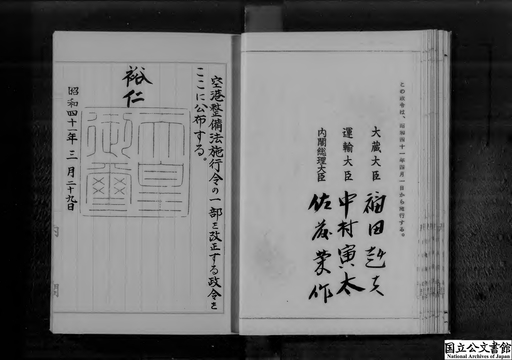 この政令は、昭和四十一年四月一日から施行する。
大蔵大臣 福田赳夫
運輸大臣 中村寅太
内閣総理大臣 佐藤榮作
空港整備法施行令の一部を改正する政令を
ここに公布する。
裕仁
天皇御璽
昭和四十一年三月二十九日
国立公文書館
National Archives of Japan